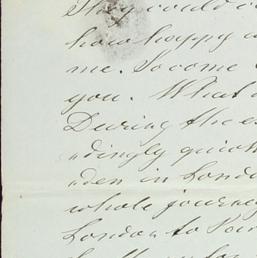 They could
how happy
me. So come
you. What
During the
ndingly quiet
nden in Londo
whole journey
London to